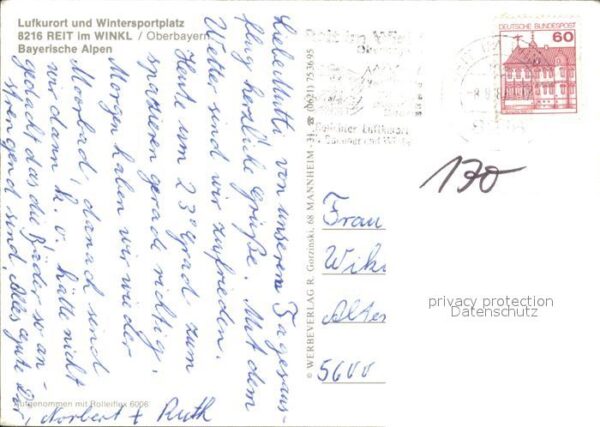 Luftkurort und Wintersportplatz
8216 REIT im WINKL / Oberbayern
Bayerische Alpen
Liebe Mutti von unserem Tagesaus-
flug herzliche Grüße. Mit dem
Wetter sind wir zufrieden.
Heute um 23° Grad zum
spazieren gerade richtig.
Morgen haben wir wieder
Moorbad, danach sind
wir dann k. o. hätte nicht
gedacht das die Bäder so an-
strengend sind. Alles gute Dir,
Norbert + Ruth
Aufgenommen mit Rolleiflex 6006
© WERBEVERLAG R. Gorzinski, 68 MANNHEIM - 31, ☎ (0621) 753695
DEUTSCHE BUNDESPOST
60
130
Frau
Wik
Alter
5600
privacy protection
Datenschutz